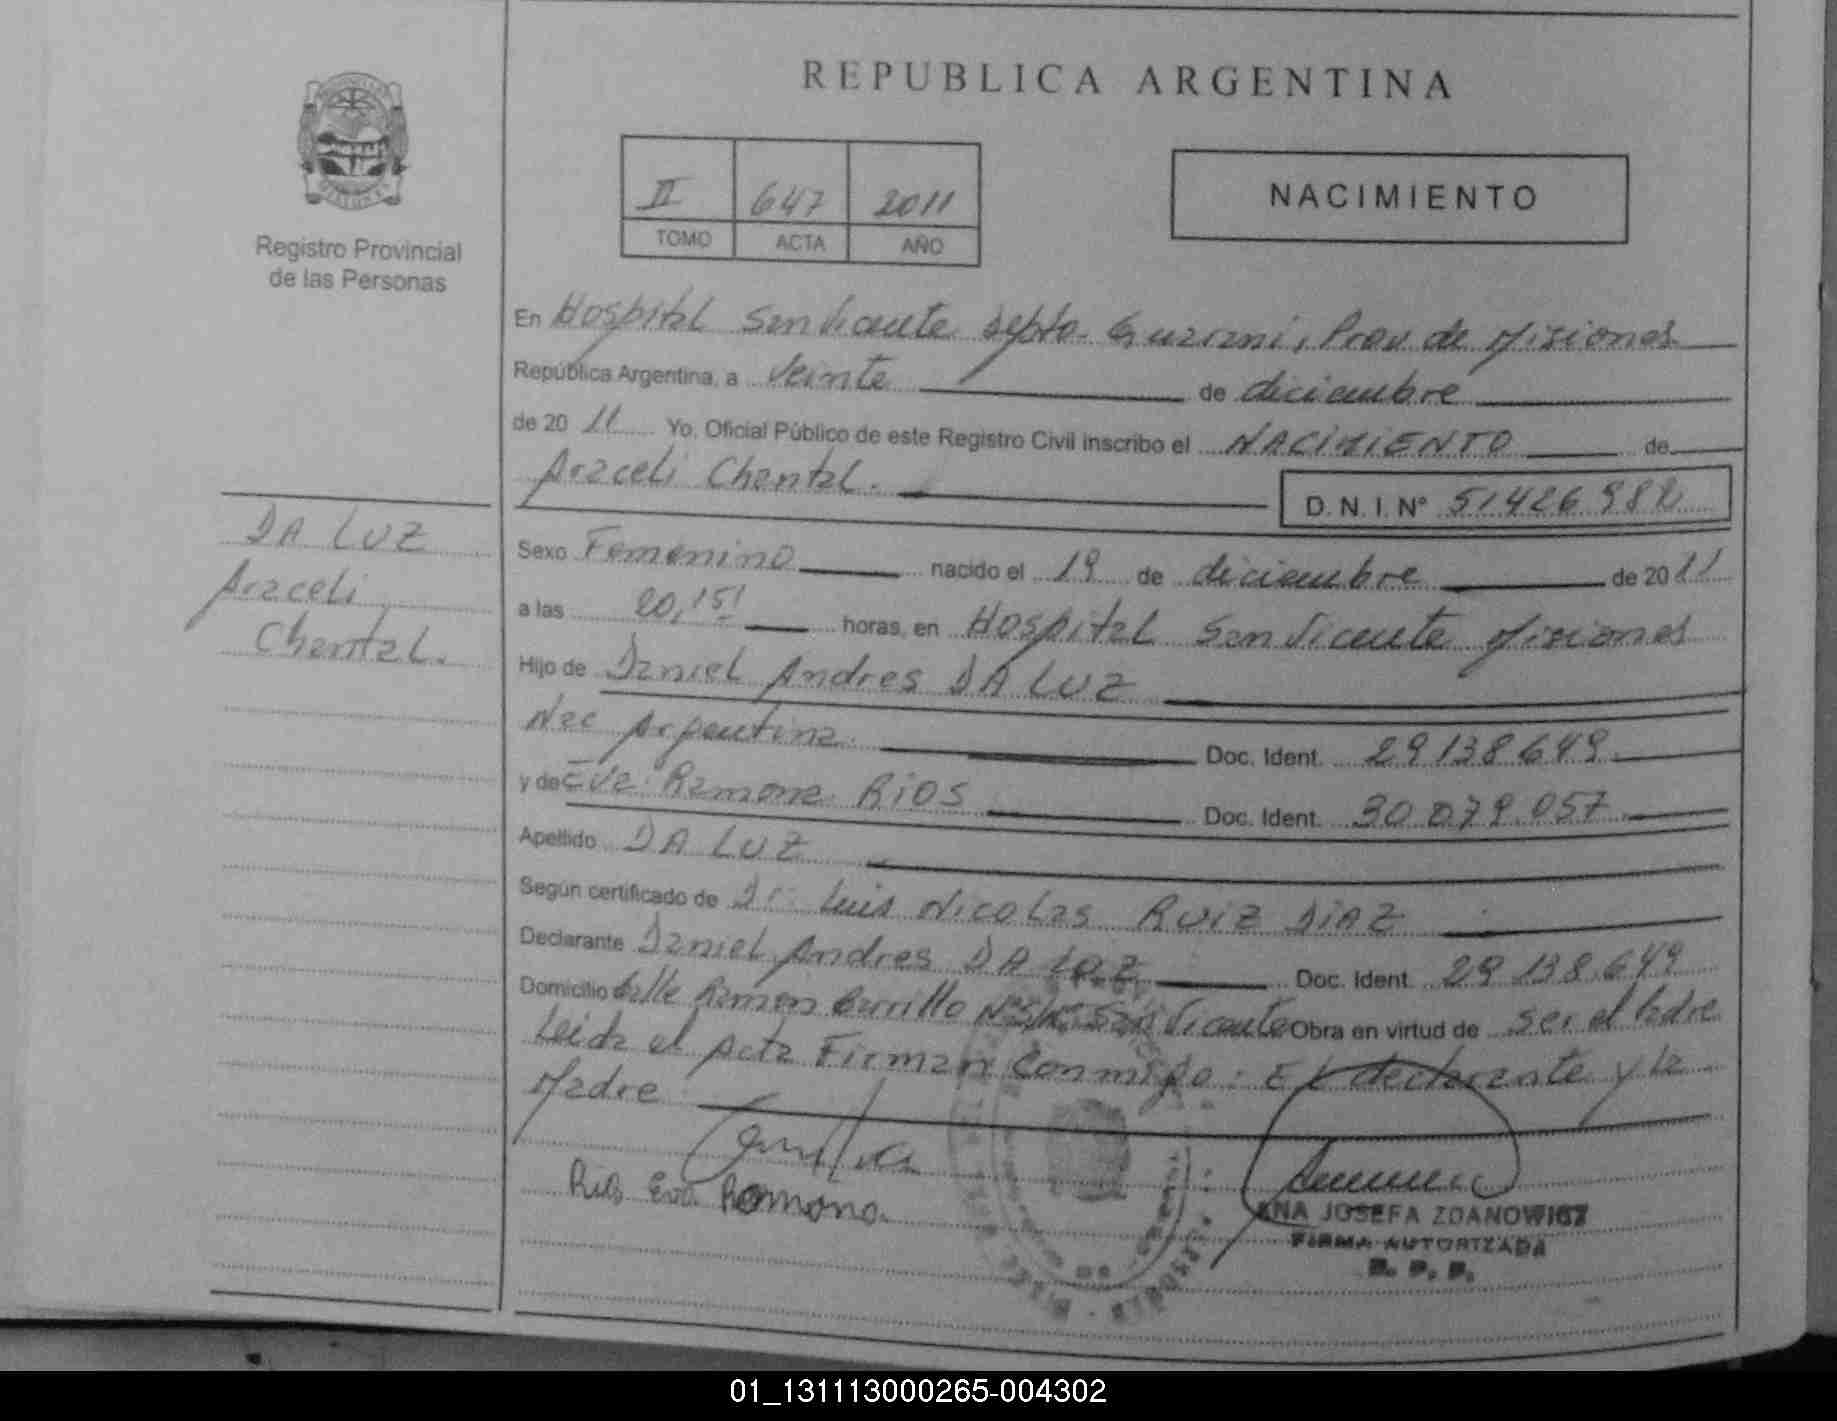 REPUBLICA ARGENTINA
II 647 2011
TOMO ACTA AÑO
NACIMIENTO
Registro Provincial
de las Personas
DA LUZ
Araceli
Chantal.
En Hospital San Vicente Depto. Guarani, Prov de Misiones
República Argentina, a Veinte de diciembre
de 20 11 Yo, Oficial Público de este Registro Civil inscribo el NACIMIENTO de
Araceli Chantal. D. N. I. Nº 51426982
Sexo Femenino nacido el 19 de diciembre de 20 11
a las 20,15' horas, en Hospital San Vicente Misiones
Hijo de Daniel Andres DA LUZ
Nac Argentina. Doc. Ident. 29.138.649
y de Eva Ramona RIOS Doc. Ident. 30.079.057
Apellido DA LUZ
Según certificado de Dr. Luis Nicolas RUIZ DIAZ
Declarante Daniel Andres DA LUZ Doc. Ident. 29.138.649
Domicilio Calle Ramon Carrillo Nº S/Nº San Vicente Obra en virtud de ser el Padre
Leida el Acta Firman Conmigo: El declarante y la
Madre
Rios Eva Ramona.
ANA JOSEFA ZDANOWICZ
FIRMA AUTORIZADA
R. P. P.
01_131113000265-004302